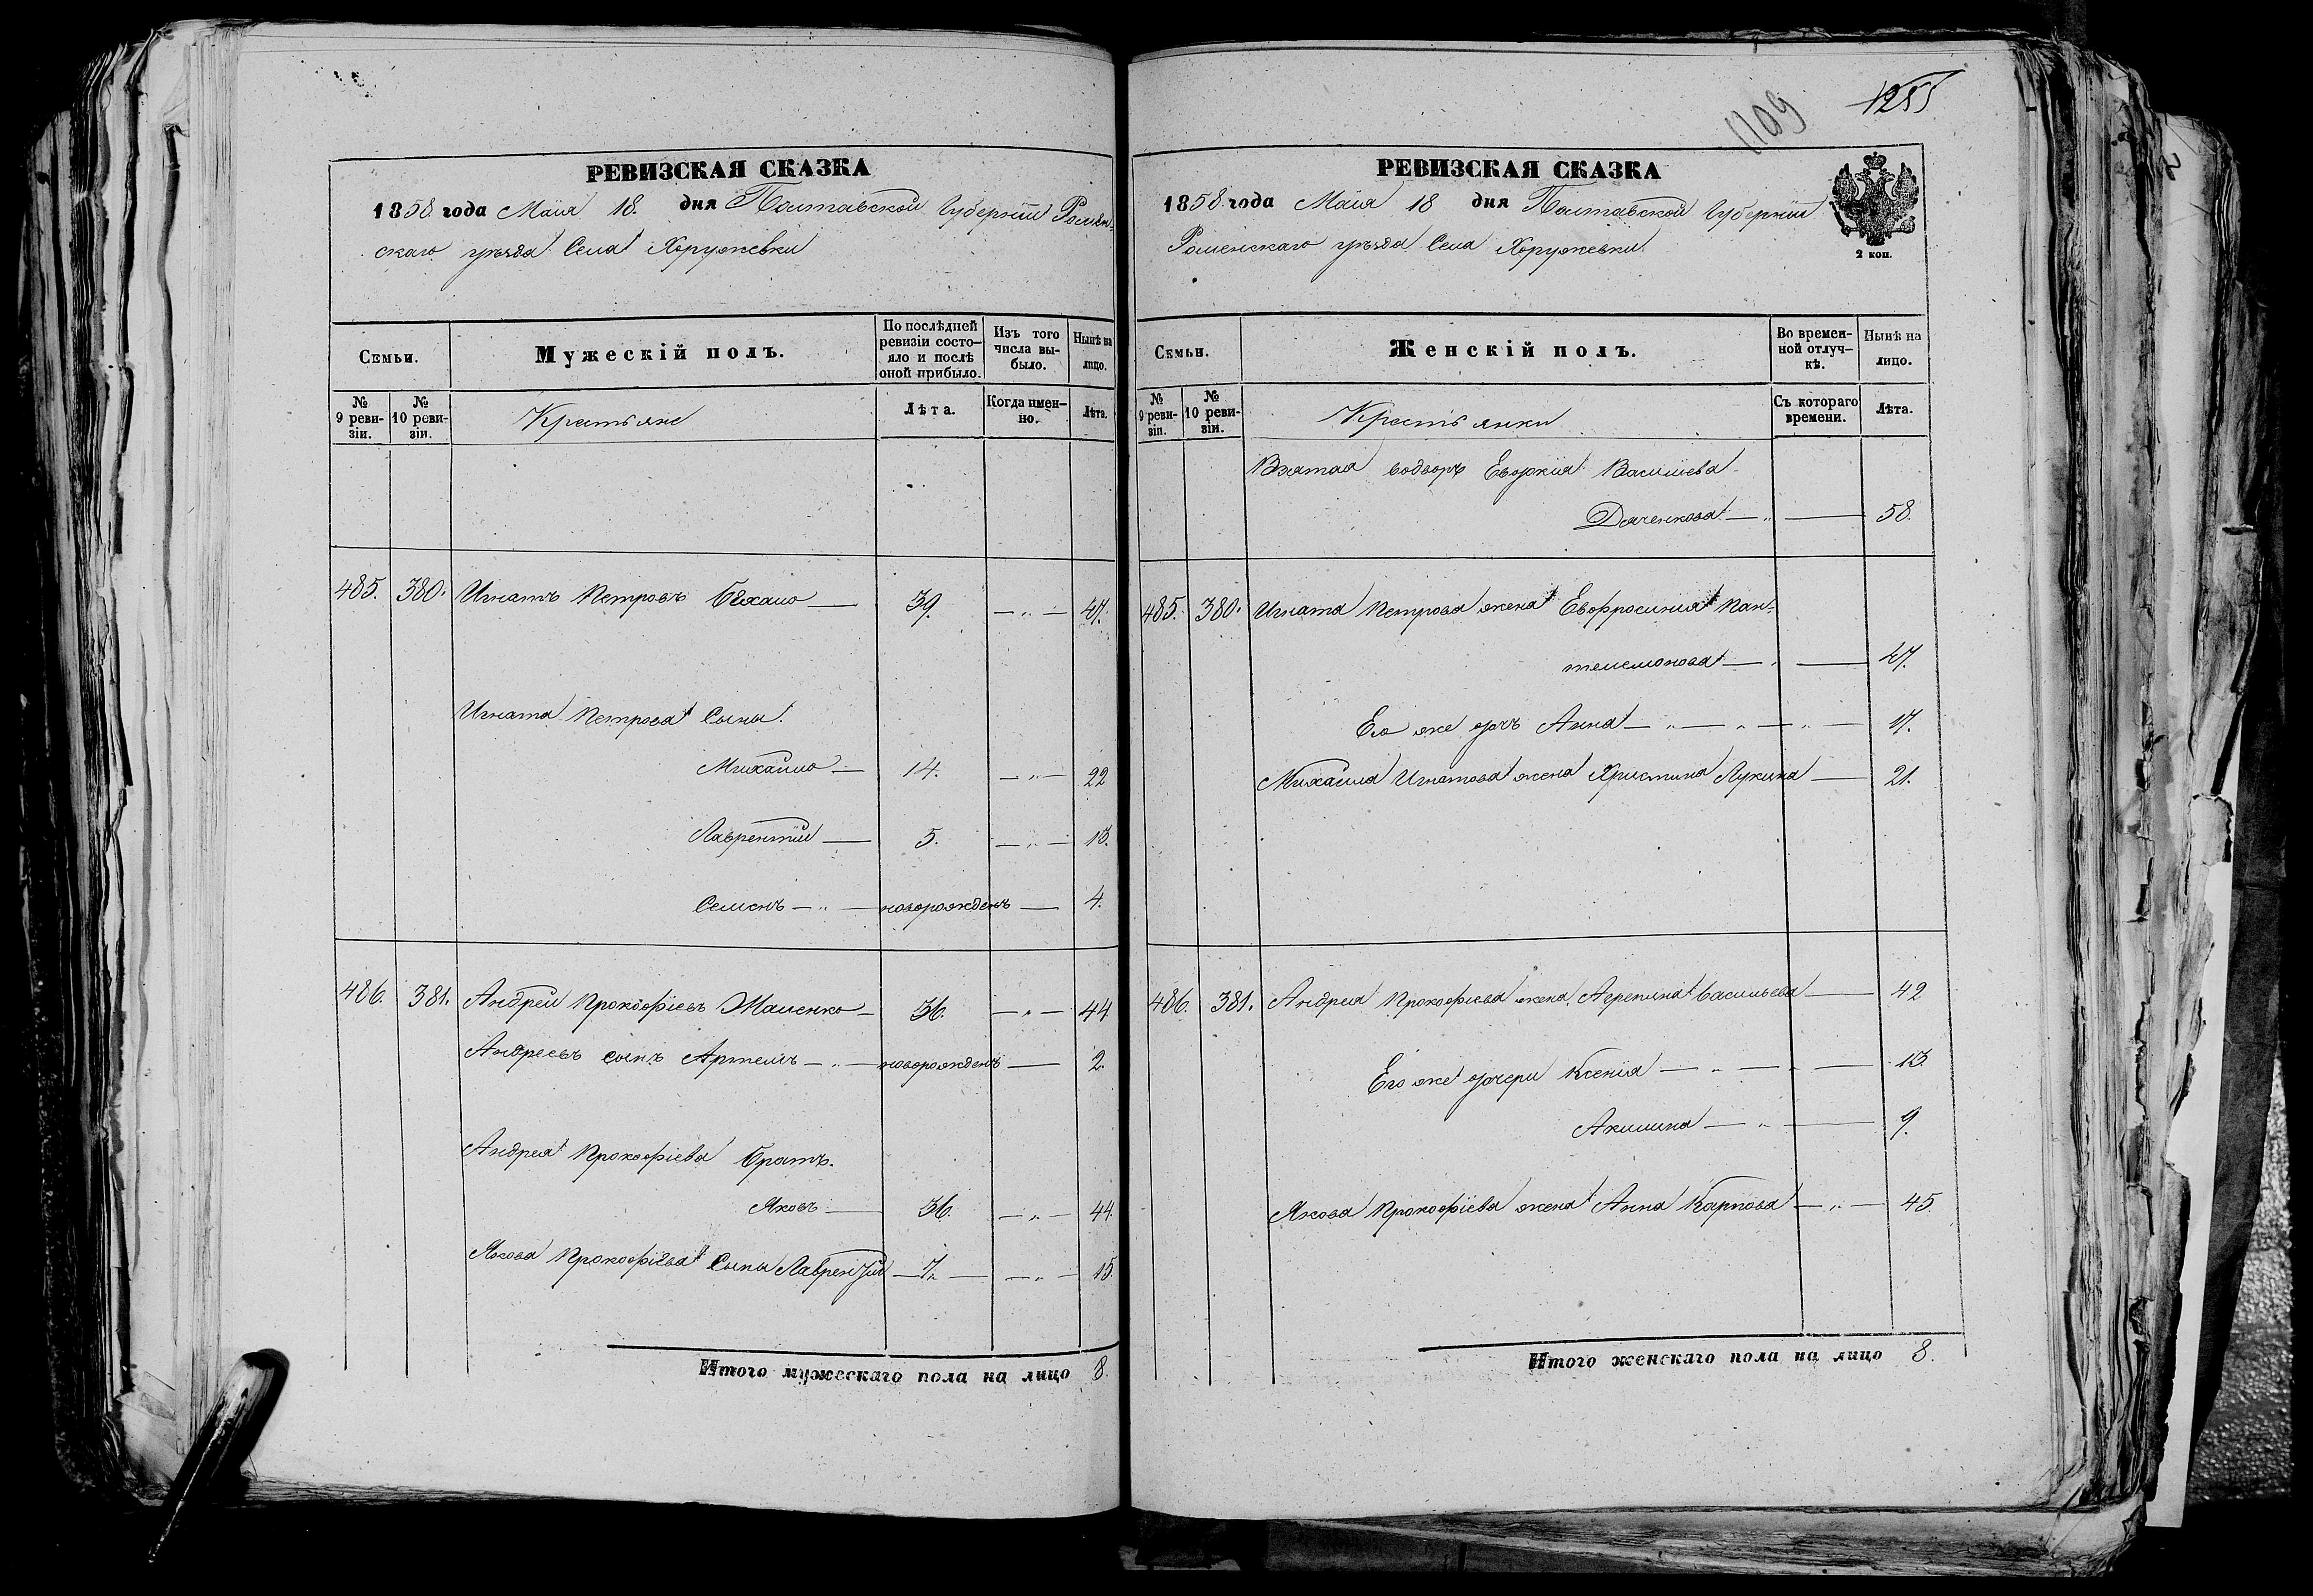 РЕВИЗСКАЯ СКАЗКА
1858 года Маія 18. дня Полтавской Губерніи Ромен-
скаго уѣзда Села Хоружевки
Семьи.
Мужескій полъ.
По послѣдней ревизіи состо-яло и послѣ оной прибыло.
Изъ того числа вы-было.
Нынѣ на лицо.
№ 9 реви-зіи.
№ 10 реви-зіи.
Крестьяне
Лѣта.
Когда имен-но.
Лѣта.
485. 380. Игнатъ Петровъ — 39. — „ — 47.
Игната Петрова Сыны.
Михайло — 14. — „ — 22
Лаврентій — 5. — „ — 13.
Семенъ — „ — новорожденъ — 4.
486. 381. Андрей Прокофіевъ Маленко — 36. — „ — 44
Андреевъ сынъ Артемъ — „ — новорожденъ — 2.
Андрея Прокофіева братъ.
Яковъ — 36. — „ — 44.
Якова Прокофіева Сыны Лаврентій — 7. — — „ — 15.
Итого мужескаго пола на лицо 8.
1109
1255
РЕВИЗСКАЯ СКАЗКА
1858 года Маія 18 дня Полтавской Губерніи
Роменскаго уѣзда Села Хоружевки
2 коп.
Семьи.
Женскій полъ.
Во времен-ной отлуч-кѣ.
Нынѣ на лицо.
№ 9 реви-зіи.
№ 10 реви-зіи.
Крестьянки
Съ котораго времени.
Лѣта.
Взятая водворъ Евдокія Васильева
Дяченкова — „ — 58.
485. 380. Игната Петрова жена Евфросинія Пан-
телемонова — „ — 47.
Его же дочь Анна — „ — „ — „ — 17.
Михайла Игнатова жена Христина Лукина — 21.
486. 381. Андрея Прокофіева жена Агрепина Васильева — 42
Его же дочери Ксенія — „ — „ — 13.
Акилина — „ — 9.
Якова Прокофіева жена Анна Карпова — „ — 45.
Итого женскаго пола на лицо 8.